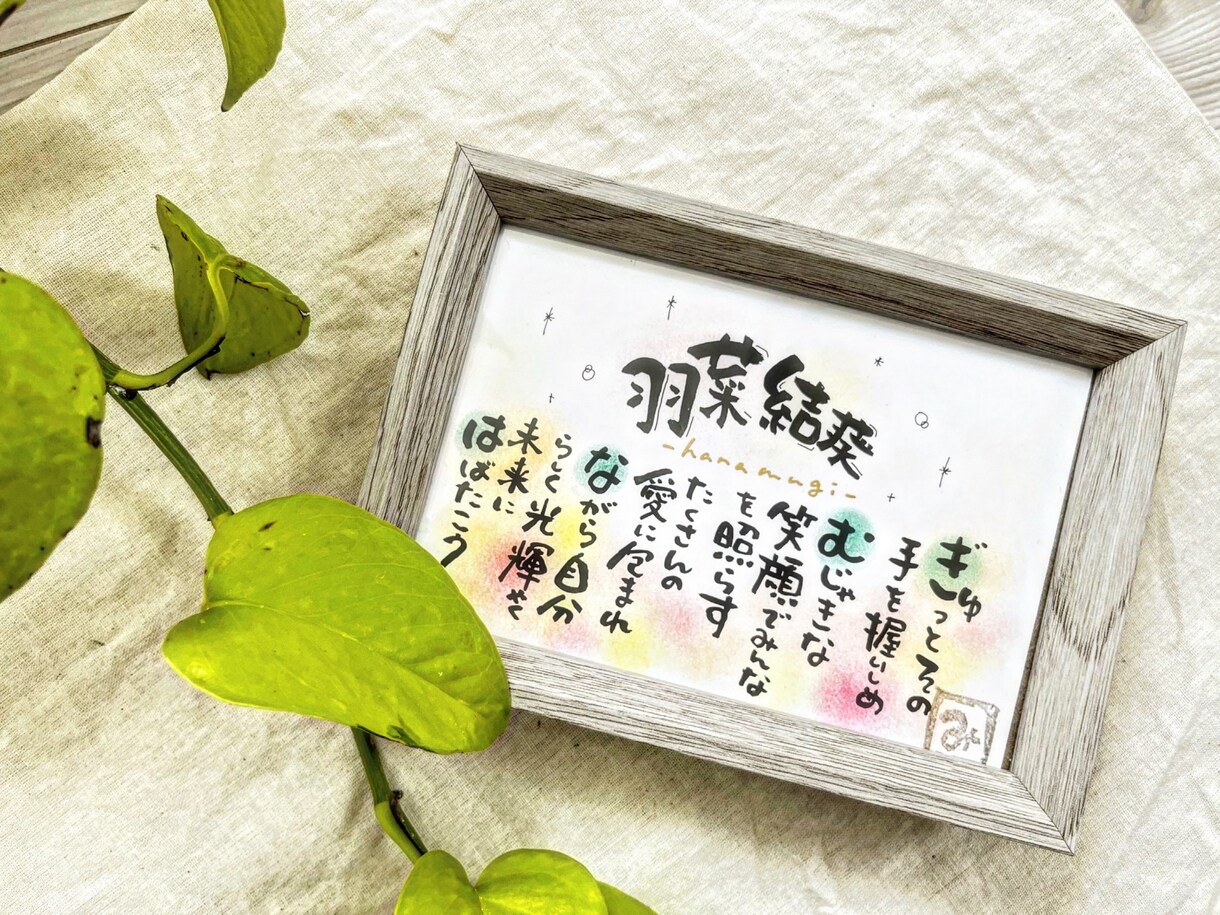 羽菜結葵
-hanamugi-
ぎゅっとその
手を握りしめ
むじゃきな
笑顔でみんな
を照らす
たくさんの
愛に包まれ
ながら自分
らしく光輝く
未来に
はばたこう